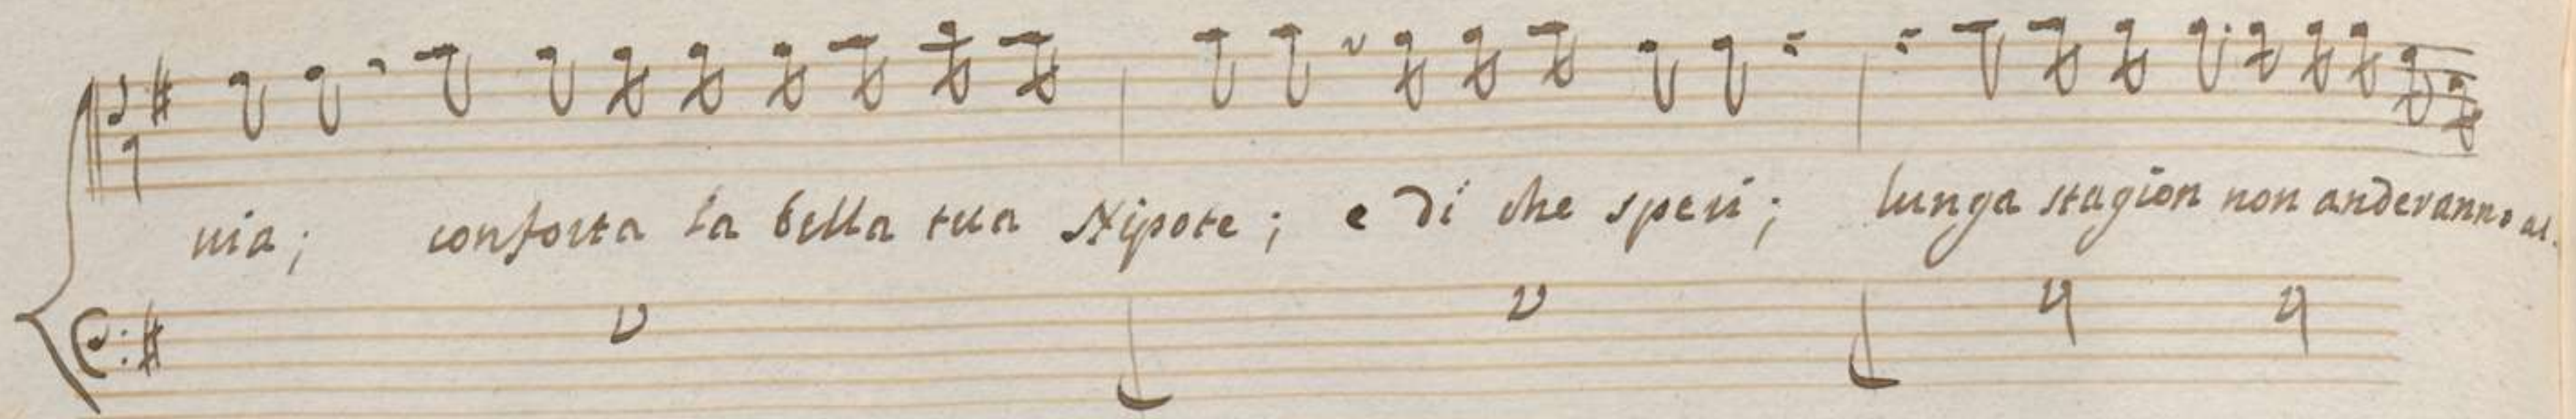 uia; conforta la bella tua Nipote; e di che speri; lunga stagion non anderanno al.